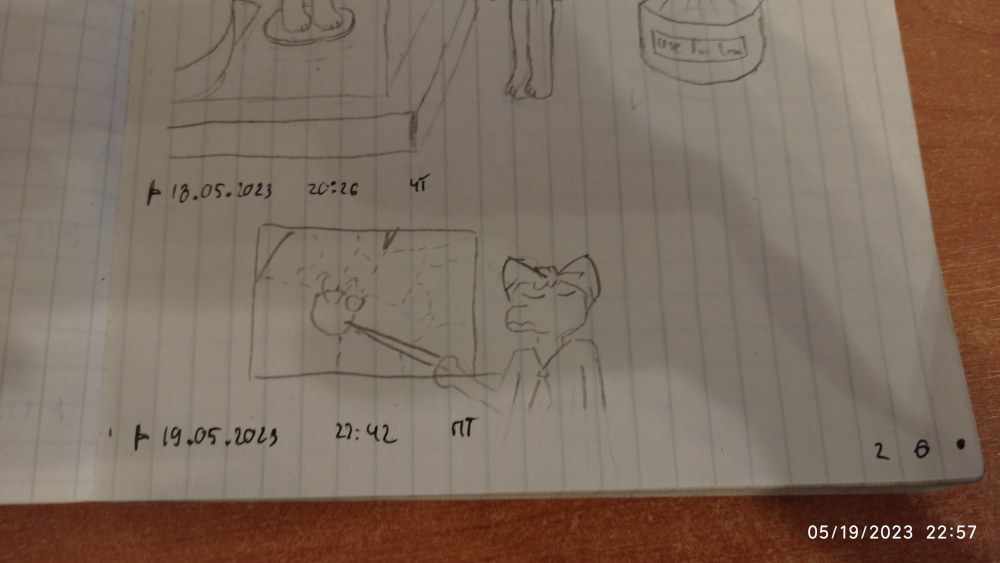 use
18.05.2023 20:26 ЧТ
19.05.2023 22:42 ПТ
2 6
05/19/2023 22:57